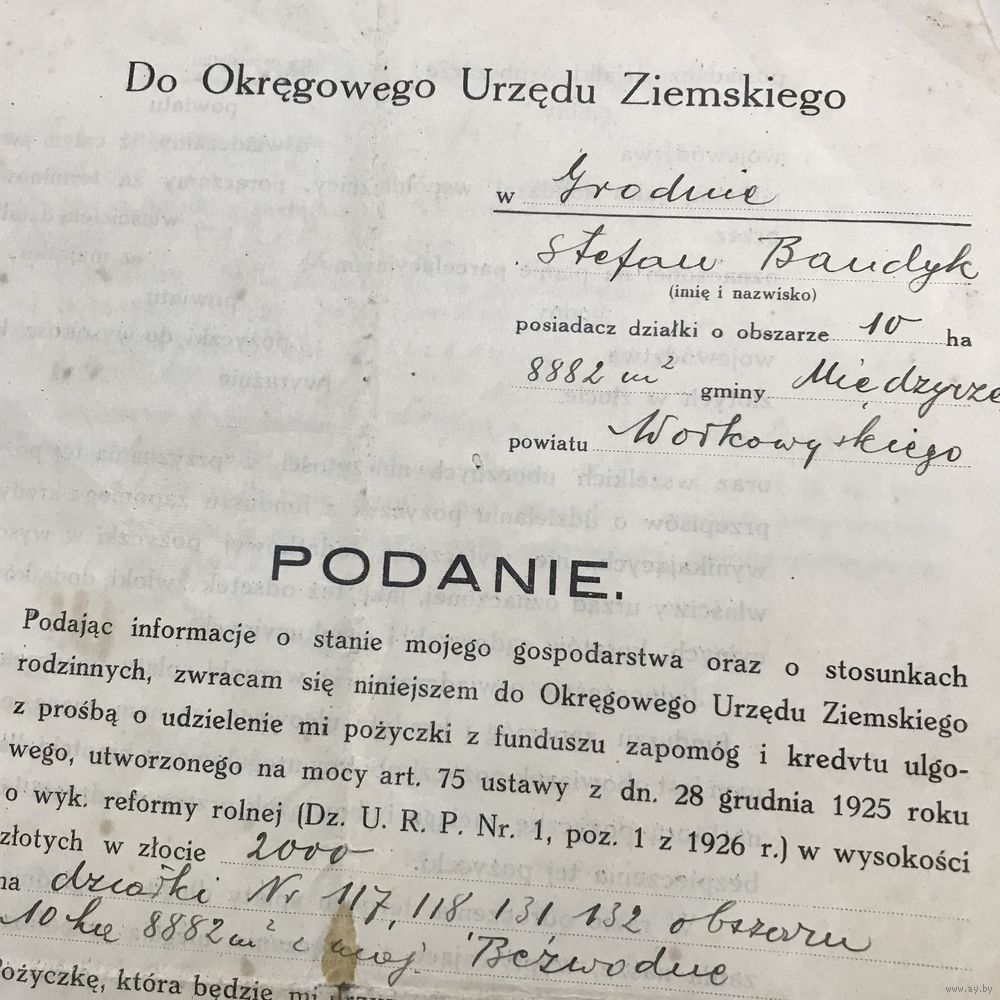 Do Okręgowego Urzędu Ziemskiego
w Grodnie
Stefan Bandyk
(imię i nazwisko)
posiadacz działki o obszarze 10 ha
8882 m² gminy Międzyrze
powiatu Wołkowyskiego
PODANIE.
Podając informacje o stanie mojego gospodarstwa oraz o stosunkach
rodzinnych, zwracam się niniejszem do Okręgowego Urzędu Ziemskiego
z prośbą o udzielenie mi pożyczki z funduszu zapomóg i kredvtu ulgo-
wego, utworzonego na mocy art. 75 ustawy z dn. 28 grudnia 1925 roku
o wyk. reformy rolnej (Dz. U. R. P. Nr. 1, poz. 1 z 1926 r.) w wysokości
złotych w złocie 2000
na działki Nr 117, 118 131 132 obszaru
10 ha 8882 m² z maj. Bezwodne
Pożyczkę, która będzie mi
www.ay.by